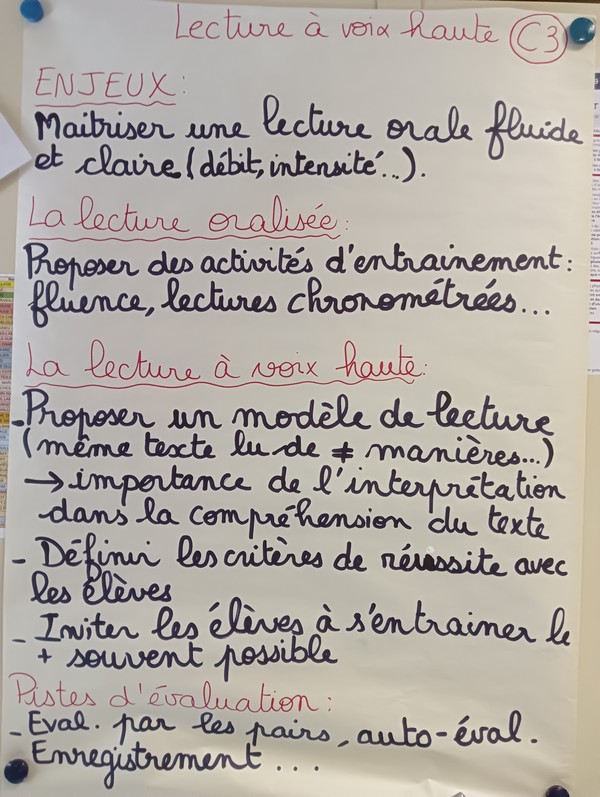 Lecture à voix haute C3
ENJEUX:
Maitriser une lecture orale fluide
et claire (débit, intensité...).
La lecture oralisée:
Proposer des activités d'entrainement:
fluence, lectures chronométrées...
La lecture à voix haute:
- Proposer un modèle de lecture
(même texte lu de ≠ manières...)
→ importance de l'interprétation
dans la compréhension du texte
- Définir les critères de réussite avec
les élèves
- Inviter les élèves à s'entrainer le
+ souvent possible
Pistes d'évaluation:
- Eval. par les pairs, auto-éval.
Enregistrement...